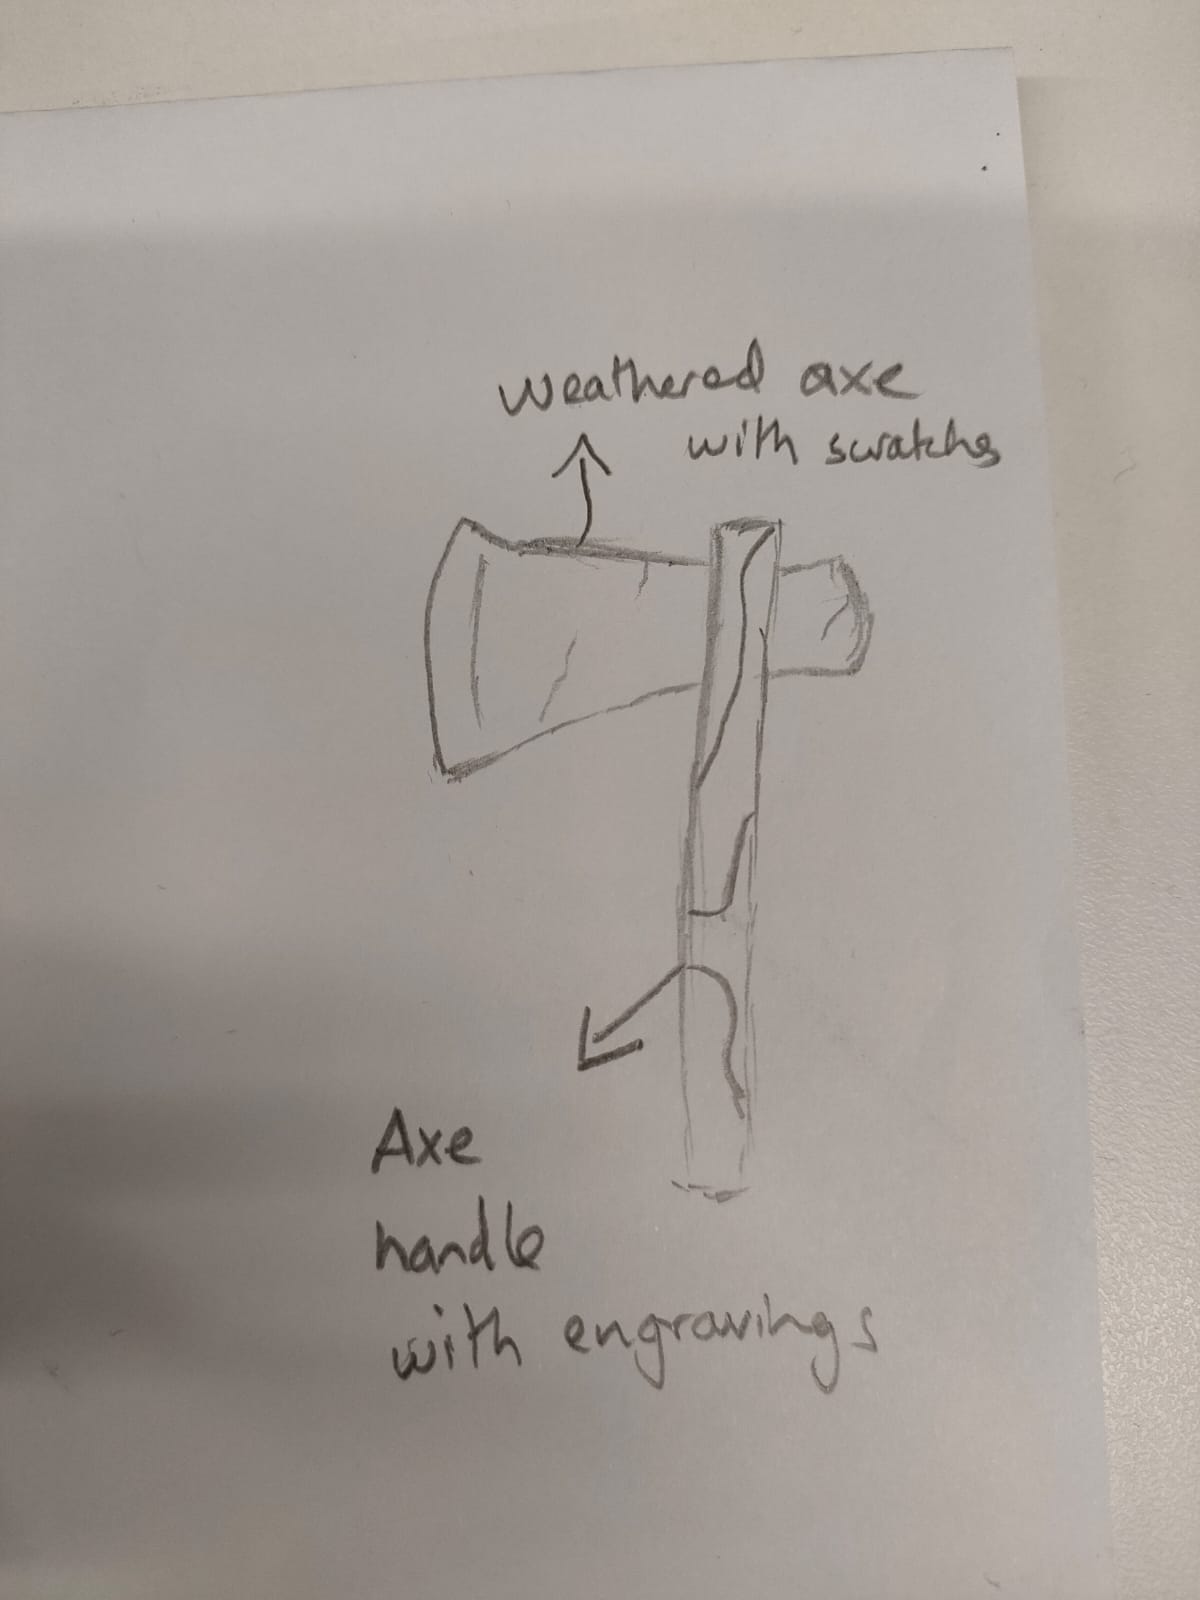 weathered axe
with swratches
Axe
handle
with engravings